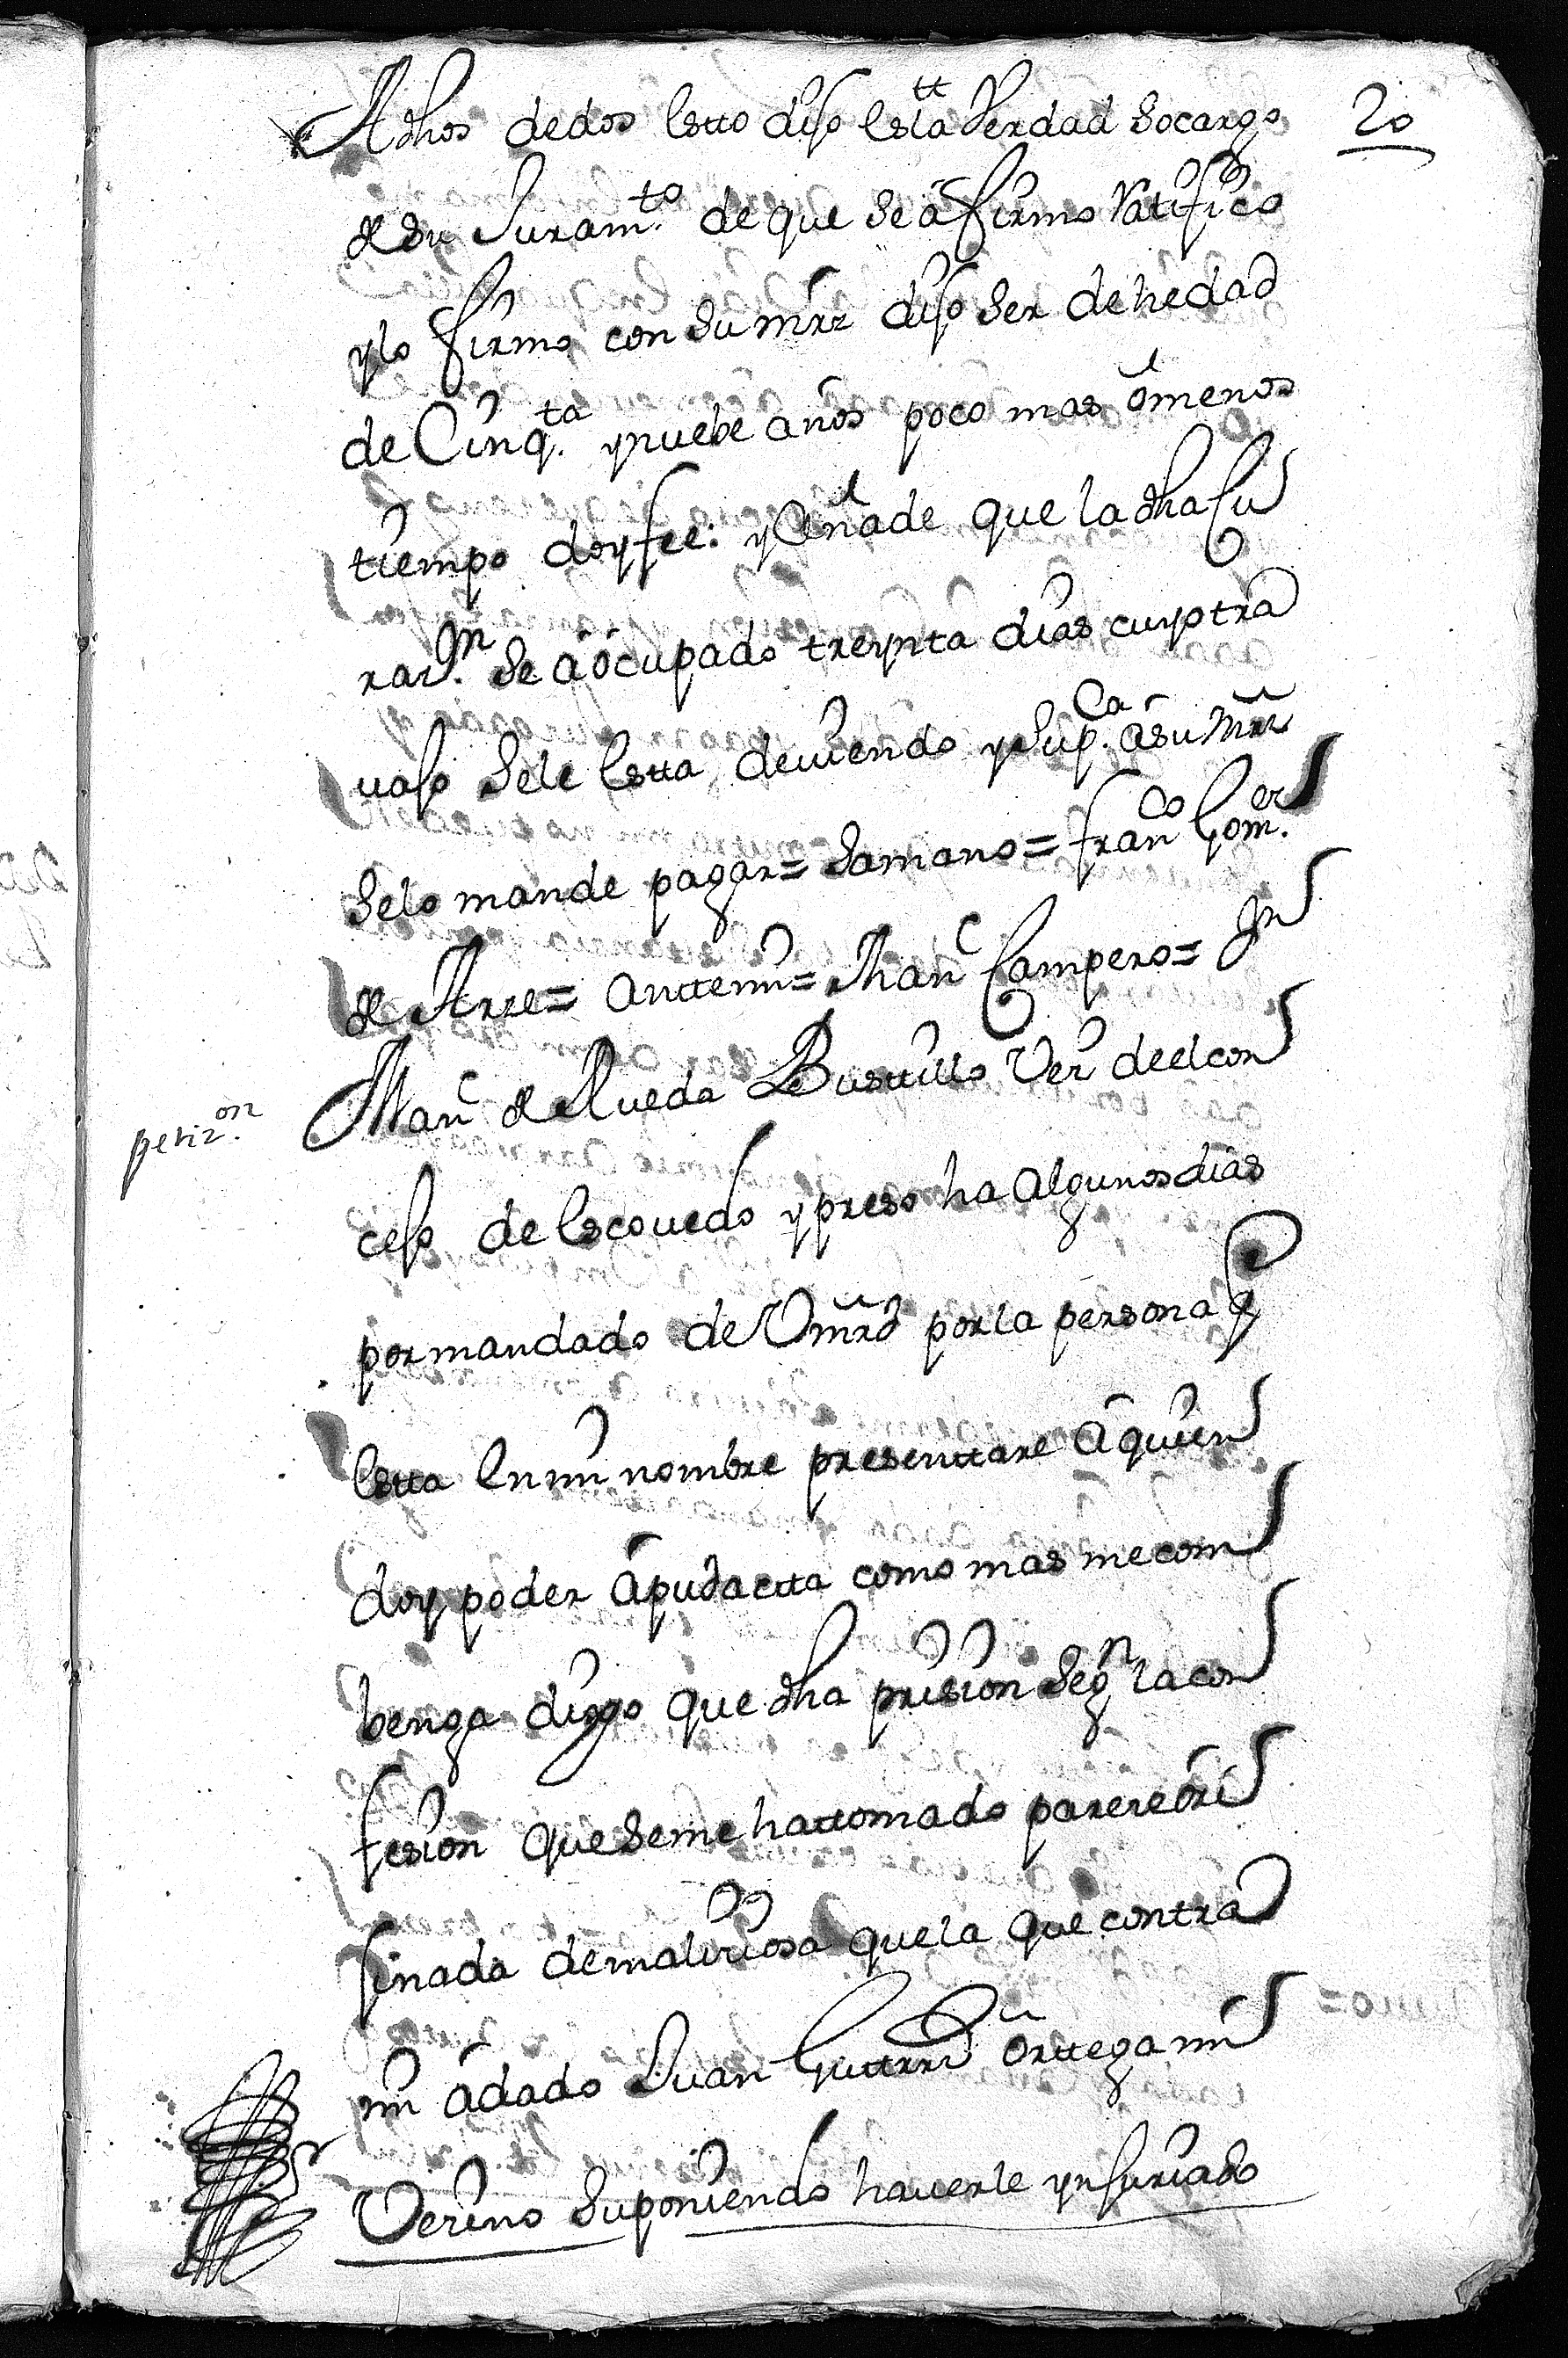 Adhos dedos estto dijo es la tt Verdad socargo 20
de su Juramto. de que se afirmo Ratifico
ylo firmo con su mrz dijo ser de hedad
de Cinqta. ynuebe años poco mas ô menos
tiempo doy fee: y añade que la dha ju
razn. se â ôcupado treynta dias cuyo tra
uajo sele estta deuiendo y supca. âsu mrz
selo mande pagar= Samano= franco Gomer.
de Arze= anttemi= Manl Campero= Jn
petizon. Manl de Rueda Busttillo Vezo de el con
cejo de escouedo y preso ha algunos dias
por mandado de Vmrd por la persona q
estta en mi nombre presenttare â quien
doy poder âpudactta como mas me com
benga diggo que dha prision segn la con
fesion que seme ha ttomado pareze ôri
jinada de maliziosa quela que contra
mi âdado Juan Guttrrz ôrttega mi
Vezino suponiendo hauerle ynjuriado